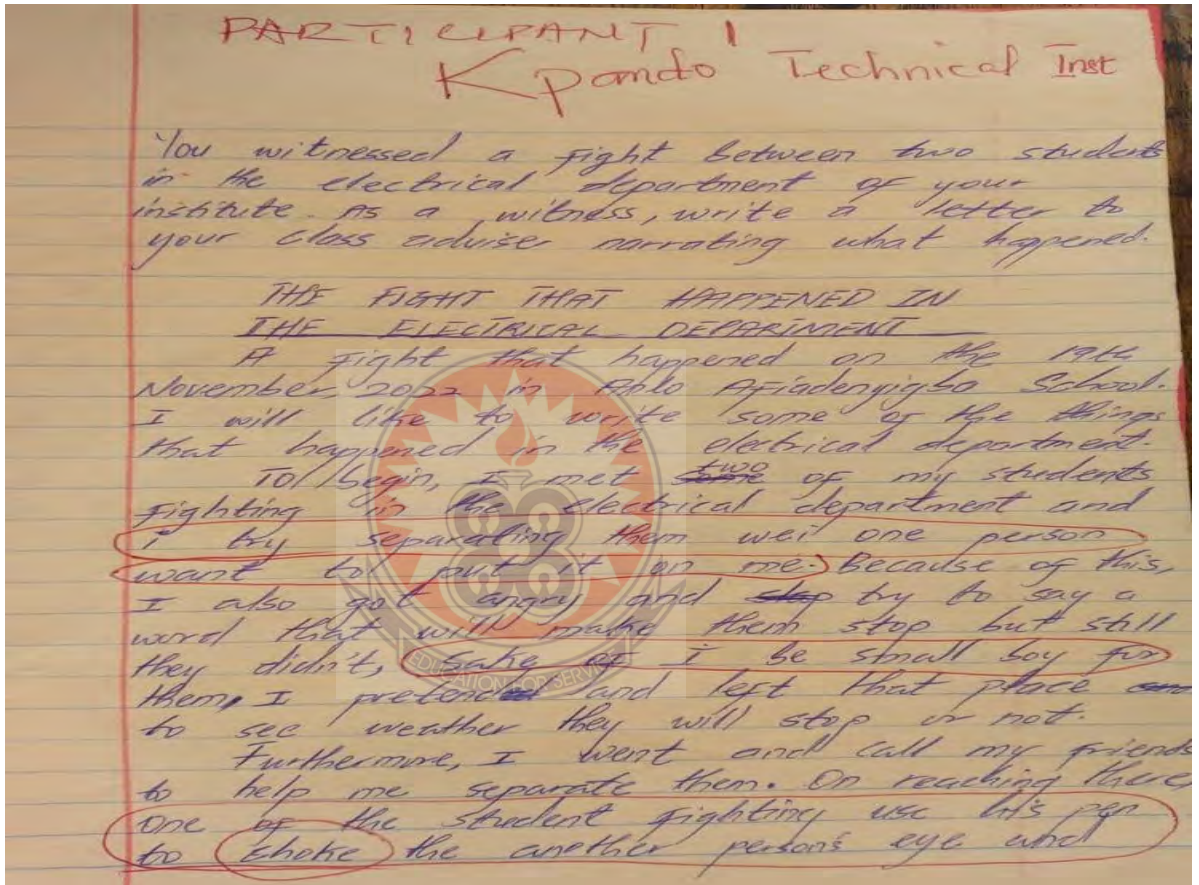 PARTICIPANT 1
Kpando Technical Inst
You witnessed a fight between two students
in the electrical department of your
institute. As a witness, write a letter to
your class adviser narrating what happened.
THE FIGHT THAT HAPPENED IN
THE ELECTRICAL DEPARTMENT
A fight that happened on the 19th
November, 2022 in Anlo Afiadenyigba School.
I will like to write some of the things
that happened in the electrical department.
To begin, I met two of my students
fighting in the electrical department and
i try separating them wei one person
want to put it on me. Because of this,
I also got angry and try to say a
word that will make them stop but still
they didn't, sake of i be small boy for
them, I pretend and left that place
to see weather they will stop or not.
Furthermore, I went and call my friends
to help me separate them. On reaching there,
one of the student fighting use his pen
to choke the another person's eye and
EDUCATION FOR SERVICE